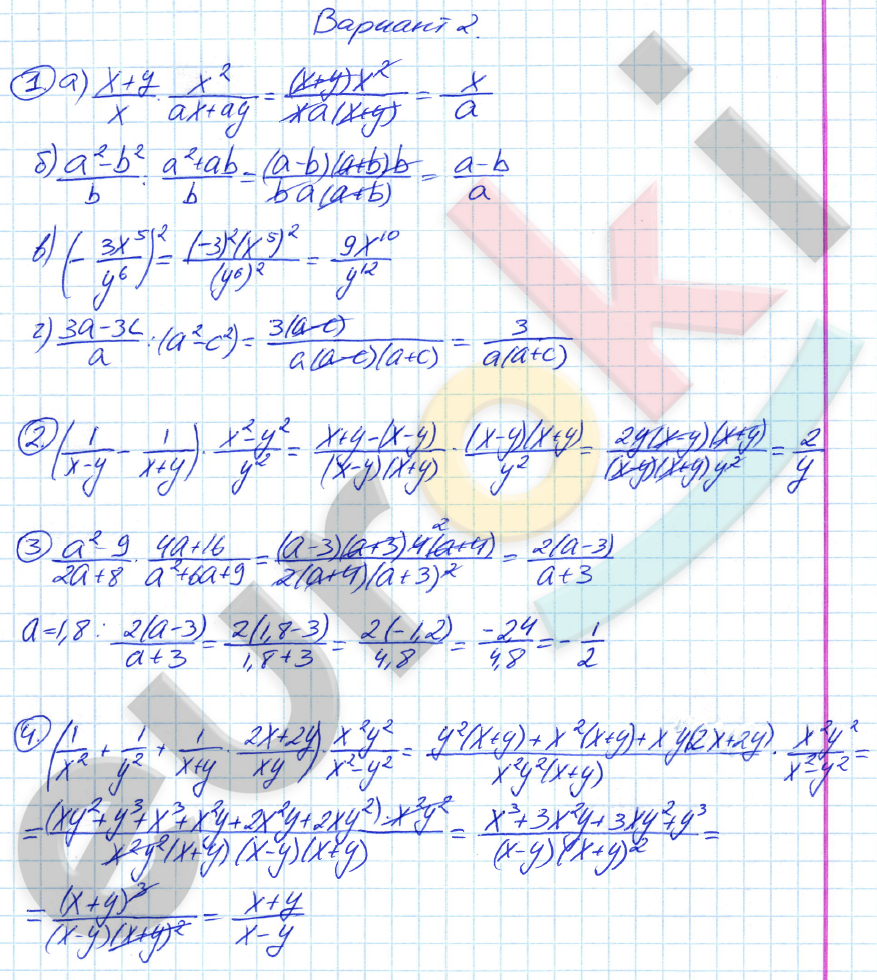 Вариант 2.
① а) (x+y)/x · x²/(ax+ay) = ((x+y)x²)/(xa(x+y)) = x/a
б) (a²-b²)/b : (a²+ab)/b = ((a-b)(a+b)b)/(ba(a+b)) = (a-b)/a
в) (-3x⁵/y⁶)² = ((-3)²(x⁵)²)/(y⁶)² = 9x¹⁰/y¹²
г) (3a-3c)/a : (a²-c²) = 3(a-c)/(a(a-c)(a+c)) = 3/(a(a+c))
② (1/(x-y) - 1/(x+y)) · (x²-y²)/y² = (x+y-(x-y))/((x-y)(x+y)) · ((x-y)(x+y))/y² = (2y(x-y)(x+y))/((x-y)(x+y)y²) = 2/y
③ (a²-9)/(2a+8) · (4a+16)/(a²+6a+9) = ((a-3)(a+3)4(a+4))/(2(a+4)(a+3)²) 2 = 2(a-3)/(a+3)
a=1,8: 2(a-3)/(a+3) = 2(1,8-3)/(1,8+3) = 2(-1,2)/4,8 = -2,4/4,8 = -1/2
④ (1/x² + 1/y² + 1/(x+y) · (2x+2y)/(xy)) · x²y²/(x²-y²) = (y²(x+y)+x²(x+y)+xy(2x+2y))/(x²y²(x+y)) · x²y²/(x²-y²) =
= ((xy²+y³+x³+x²y+2x²y+2xy²)·x²y²)/(x²y²(x+y)(x-y)(x+y)) = (x³+3x²y+3xy²+y³)/((x-y)(x+y)²) =
= (x+y)³/((x-y)(x+y)²) = (x+y)/(x-y)
euroki